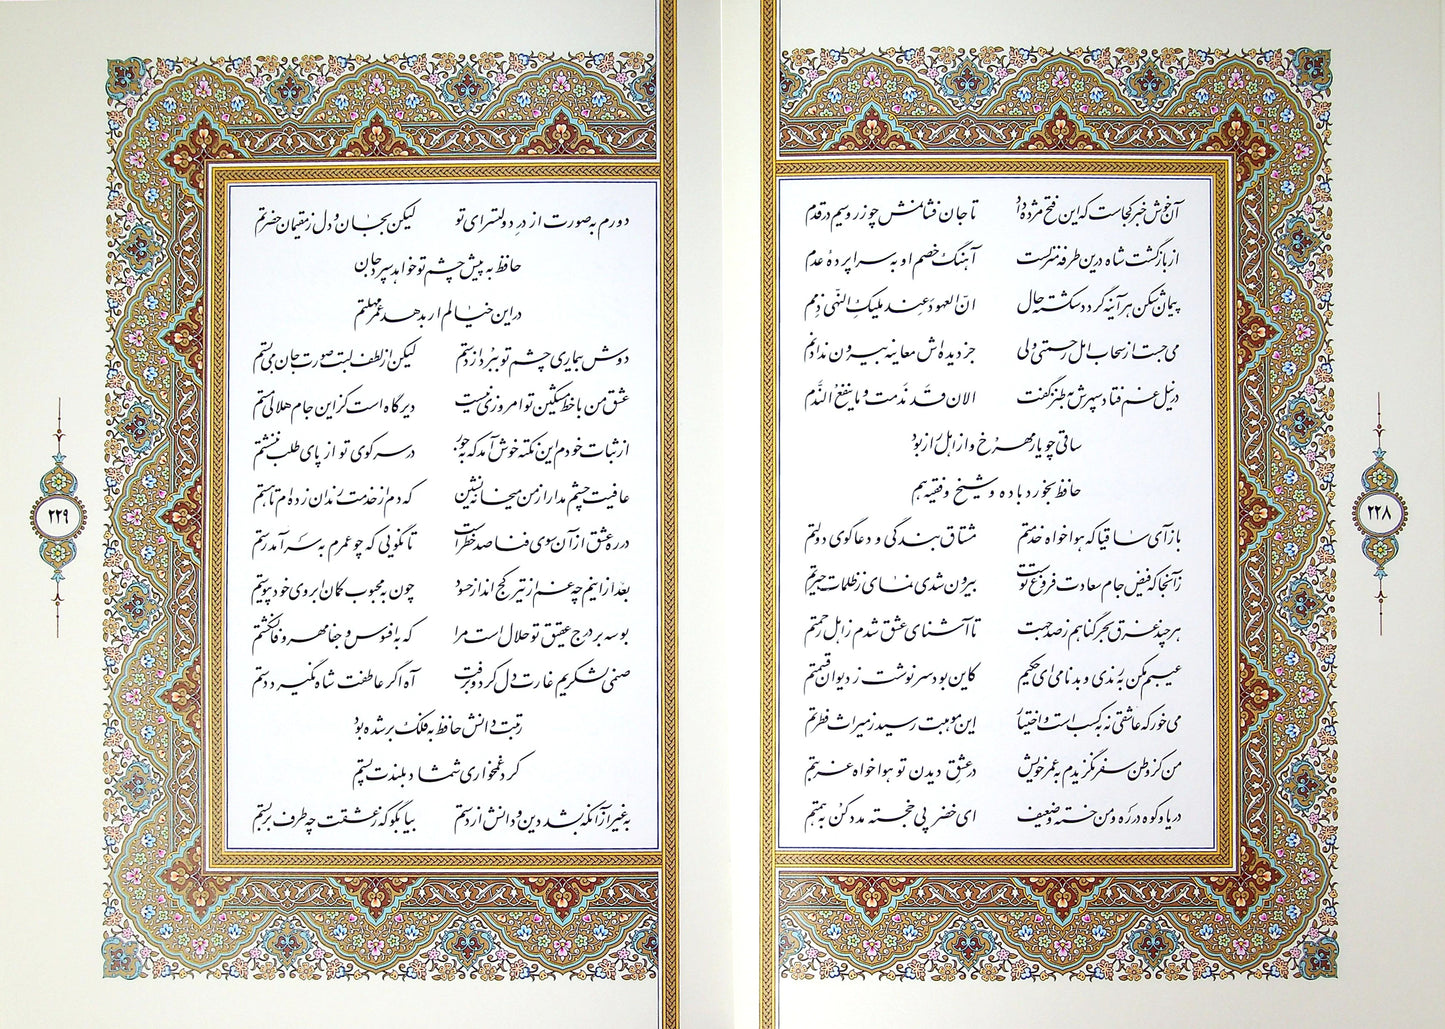 آن خوش خبر کجاست که این فتح مژده داد تا جان فشانمش چو زر و سیم در قدم
از بازگشت شاه درین طرفه منزلست آهنگ خصم او به سراپردهٔ عدم
پیمان شکن هرآینه گردد شکسته حال انّ العهود عند ملیک النّهی ذمم
می جست از سحاب امل رحمتی ولی جز دیده‌اش معاینه بیرون نداد نم
در نیل غم فتاد سپهرش به طنز گفت الان قد ندمت و ما ینفع النّدم
ساقی چو یار مهرخ و از اهل راز بود
حافظ بخورد باده و شیخ و فقیه هم
بازآی ساقیا که هواخواه خدمتم مشتاق بندگی و دعاگوی دولتم
زآنجا که فیض جام سعادت فروغ توست بیرون شدی نمای ز ظلمات حیرتم
هرچند غرق بحر گناهم ز صد جهت تا آشنای عشق شدم ز اهل رحمتم
عیبم مکن به رندی و بدنامی ای حکیم کاین بود سرنوشت ز دیوان قسمتم
می خور که عاشقی نه به کسب است و اختیار این موهبت رسید ز میراث فطرتم
من کز وطن سفر نگزیدم به عمر خویش در عشق دیدن تو هواخواه غربتم
دریا و کوه در ره و من خسته و ضعیف ای خضر پی خجسته مدد کن به همتم
۲۲۸
دورم به صورت از در دولتسرای تو لیکن بجان و دل ز مقیمان حضرتم
حافظ به پیش چشم تو خواهد سپرد جان
در این خیالم ار بدهد عمر مهلتم
دوش بیماری چشم تو ببرد از دستم لیکن از لطف لبت صورت جان می بستم
عشق من با خط مشکین تو امروزی نیست دیرگاه است کز این جام هلالی مستم
از ثبات خودم این نکته خوش آمد که به جور در سر کوی تو از پای طلب ننشستم
عافیت چشم مدار از من میخانه نشین که دم از خدمت رندان زده‌ام تا هستم
در ره عشق از آن سوی فنا صد خطرست تا نگویی که چو عمرم به سر آمد رستم
بعد از اینم چه غم از تیر کج انداز حسود چون به محبوب کمان ابروی خود پیوستم
بوسه بر درج عقیق تو حلال است مرا که به افسوس و جفا مهر وفا نشکستم
صنمی لشکریم غارت دل کرد و برفت آه اگر عاطفت شاه نگیرد دستم
رتبت دانش حافظ به فلک برشده بود
کرد غمخواری شمشاد بلندت پستم
به غیر از آنکه بشد دین و دانش از دستم بیا بگو که ز عشقت چه طرف بربستم
۲۲۹